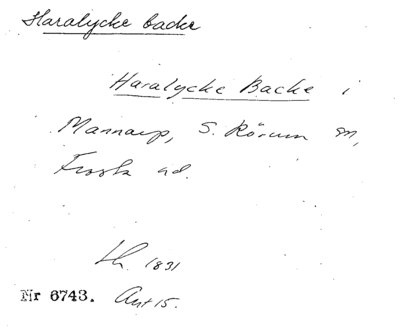 Haralycke backe
Haralycke Backe i
Mannarp, S. Rörum sn,
Frosta hd.
Lh. 1831
Nr 6743. Ant 15.